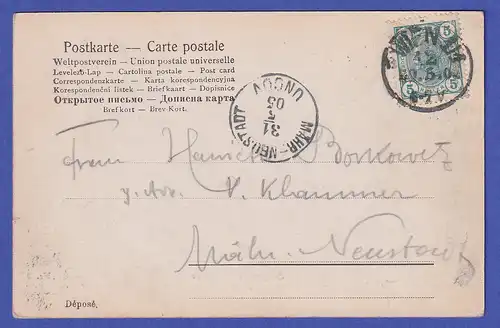 Postkarte — Carte postale
Weltpostverein — Union postale universelle
Levelező-Lap — Cartolina postale — Post card
Correspondenzkarte — Karta korespondencyjna
Korespondenční lístek — Briefkaart — Dopisnice
Открытое письмо — Дописна карта
Brefkort — Brev-Kort.
5 5
5 5
WIEN
MÄHR.-NEUSTADT UNČOV
31
5
05
Frau
V. Klammer
Mähr. Neustadt
Déposé.